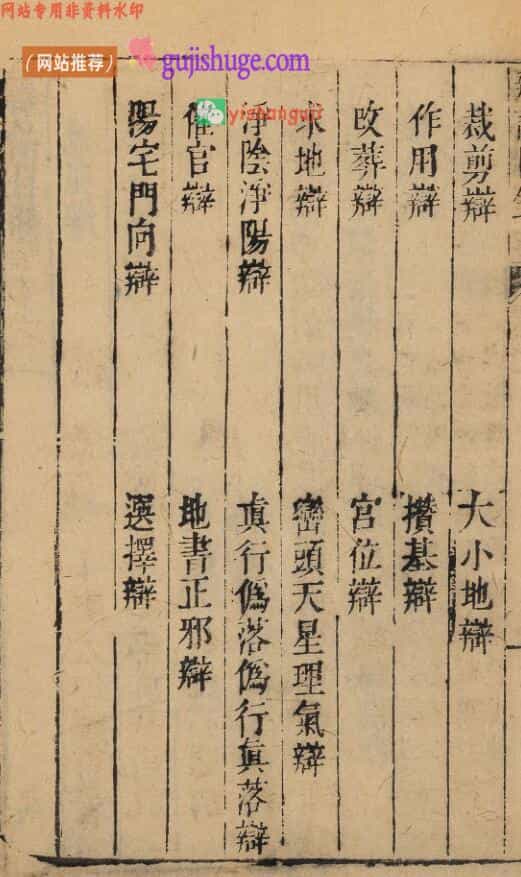 网站专用非资料水印
（网站推荐）
gujishuge.com
yishanguji
裁剪辯 大小地辯
作用辯 攢基辯
改葬辯 官位辯
求地辯 巒頭天星理氣辯
淨陰淨陽辯 眞行僞落僞行眞落辯
催官辯 地書正邪辯
陽宅門向辯 選擇辯